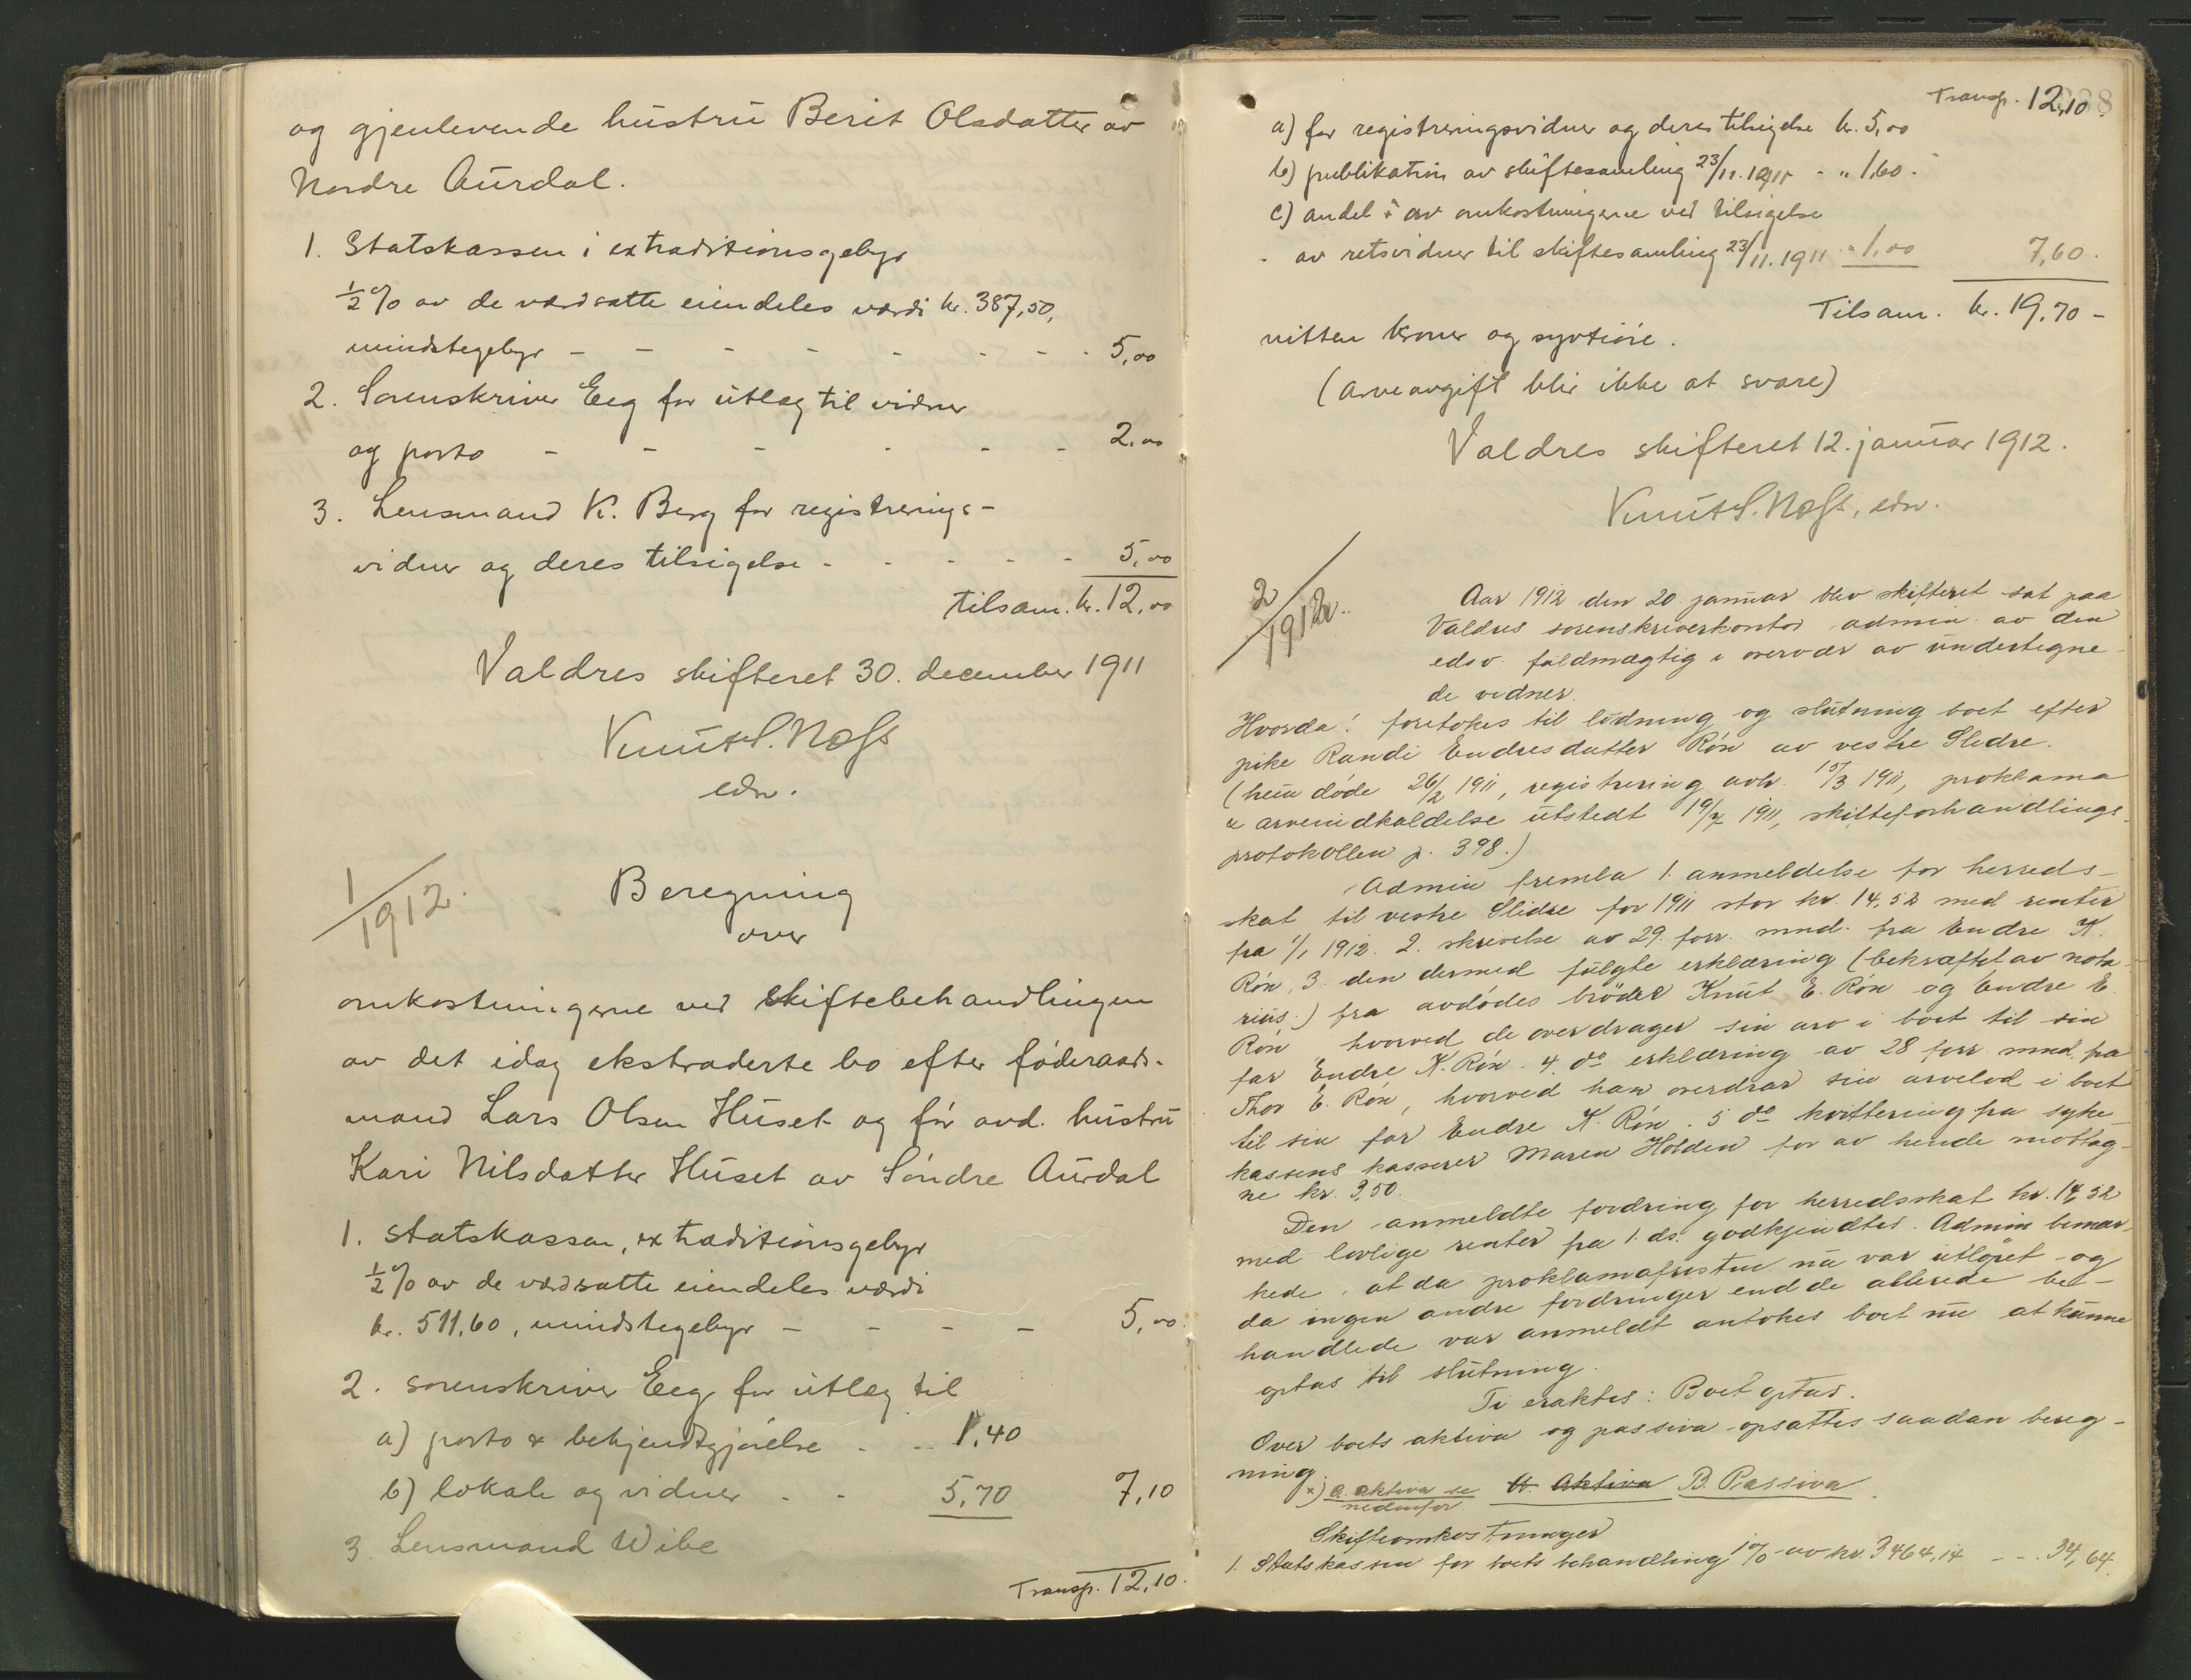 og gjenlevende hustru Berit Olsdatter av
Nordre Aurdal.
1. Statskassen i extraditionsgebyr
½ % av de værdsatte eiendeles værdi kr. 387,50,
mindstegebyr - - - - - - - 5,00
2. Sorenskriver Eeg for utlæg til vidner
og porto - - - - - - 2,00
3. Lensmand K. Berg for registrerings-
vidner og deres tilsigelse - - - - - 5,00
tilsam. kr. 12,00
Valdres skifteret 30. december 1911
Knut S. Næss
edsv.
1/1912.
Beregning
over
omkostningerne ved skiftebehandlingen
av det idag ekstraderte bo efter föderaads-
mand Lars Olsen Huset og før avd. hustru
Kari Nilsdatter Huset av Søndre Aurdal
1. Statskassen, extraditionsgebyr
½ % av de værdsatte eiendeles værdi
kr. 511,60, mindstegebyr - - - - 5,00
2. sorenskriver Eeg for utlæg til
a) porto & bekjendtgjørelse - - 1,40
b) lokale og vidner - - 5,70 7,10
3. Lensmand Wibe
Transp. 12,10.
Transp. 12,10
a) for registreringsvidner og deres tilsigelse kr. 5,00
b) publikation av skiftesamling 23/11.1911 - " 1,60.
c) andel i av omkostningerne ved tilsigelse
av retsvidner til skiftesamling 23/11.1911 " 1,00 7,60.
Tilsam. kr. 19,70 -
nitten kroner og syvtiøre.
(Arveavgift blir ikke at svare)
Valdres skifteret 12. januar 1912.
Knut S. Næss, edsv.
2/1912.
Aar 1912 den 20. januar blev skifteret sat paa
Valdres sorenskriverkontor admin. av den
edsv. fuldmægtig i overvær av undertegne-
de vidner.
Hvorda: foretokes til lodning og slutning boet efter
pike Randi Endresdatter Røn av vestre Slidre.
(hun døde 26/2 1911, registrering avh. 15/3 1911, proklama
& arveindkaldelse utstedt 19/7 1911, skifteforhandlings-
protokollen p. 398.)
Admin fremla 1. anmeldelse for herreds-
skat til vestre Slidre for 1911 stor kr. 14,52 med renter
fra 1/1 1912. 2. skrivelse av 29. forr. mnd. fra Endre K.
Røn, 3. den dermed fulgte erklæring (bekræftet av nota-
rius) fra avdødes brödre Knut E. Røn og Endre E.
Røn hvorved de overdrager sin arv i boet til sin
far Endre K. Røn. 4. do erklæring av 28 forr. mnd. fra
Thor E. Røn, hvorved han overdrar sin arvelod i boet
til sin far Endre K. Røn. 5 do kvittering fra syke-
kassens kasserer Maren Holden for av hende mottag-
ne kr. 3,50.
Den anmeldte fordring for herredsskat kr. 14,52
med lovlige renter fra 1. ds. godkjendtes. Admin bemær-
kede, at da proklamafristen nu var utløpet og
da ingen andre fordringer end de allerede be-
handlede var anmeldt antokes boet nu at kunne
optas til slutning.
Ti eraktes: Boet optas.
Over boets aktiva og passiva opsattes saadan bereg-
ning:
x) a. aktiva se nedenfor A. Aktiva B. Passiva
Skifteomkostninger
1. Statskassen for boets behandling 1% av kr. 3464,14 - - 34,64.